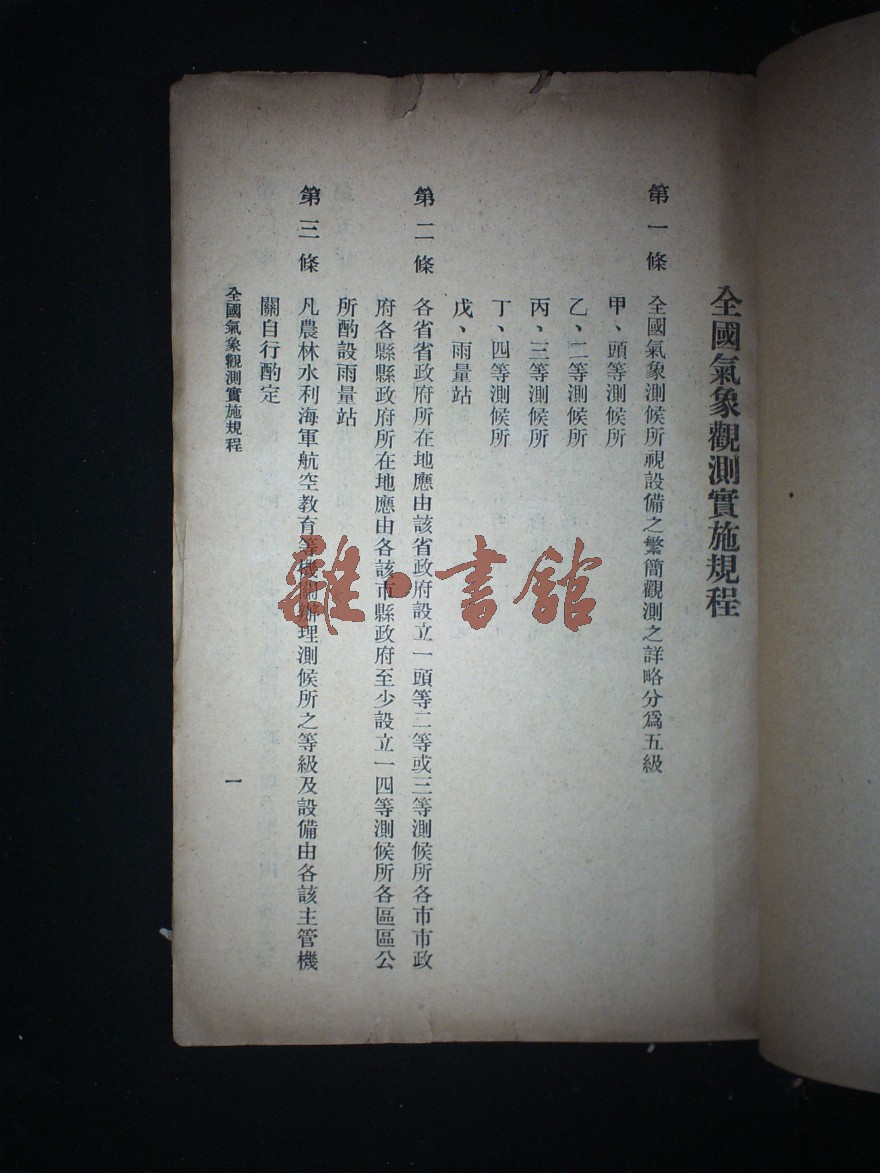 全國氣象觀測實施規程
第一條 全國氣象測候所視設備之繁簡觀測之詳略分爲五級
甲、頭等測候所
乙、二等測候所
丙、三等測候所
丁、四等測候所
戊、雨量站
第二條 各省省政府所在地應由該省政府設立一頭等二等或三等測候所各市市政
府各縣縣政府所在地應由各該市縣政府至少設立一四等測候所各區區公
所酌設雨量站
第三條 凡農林水利海軍航空教育等機關辦理測候所之等級及設備由各該主管機
關自行酌定
全國氣象觀測實施規程 一
雜·書館